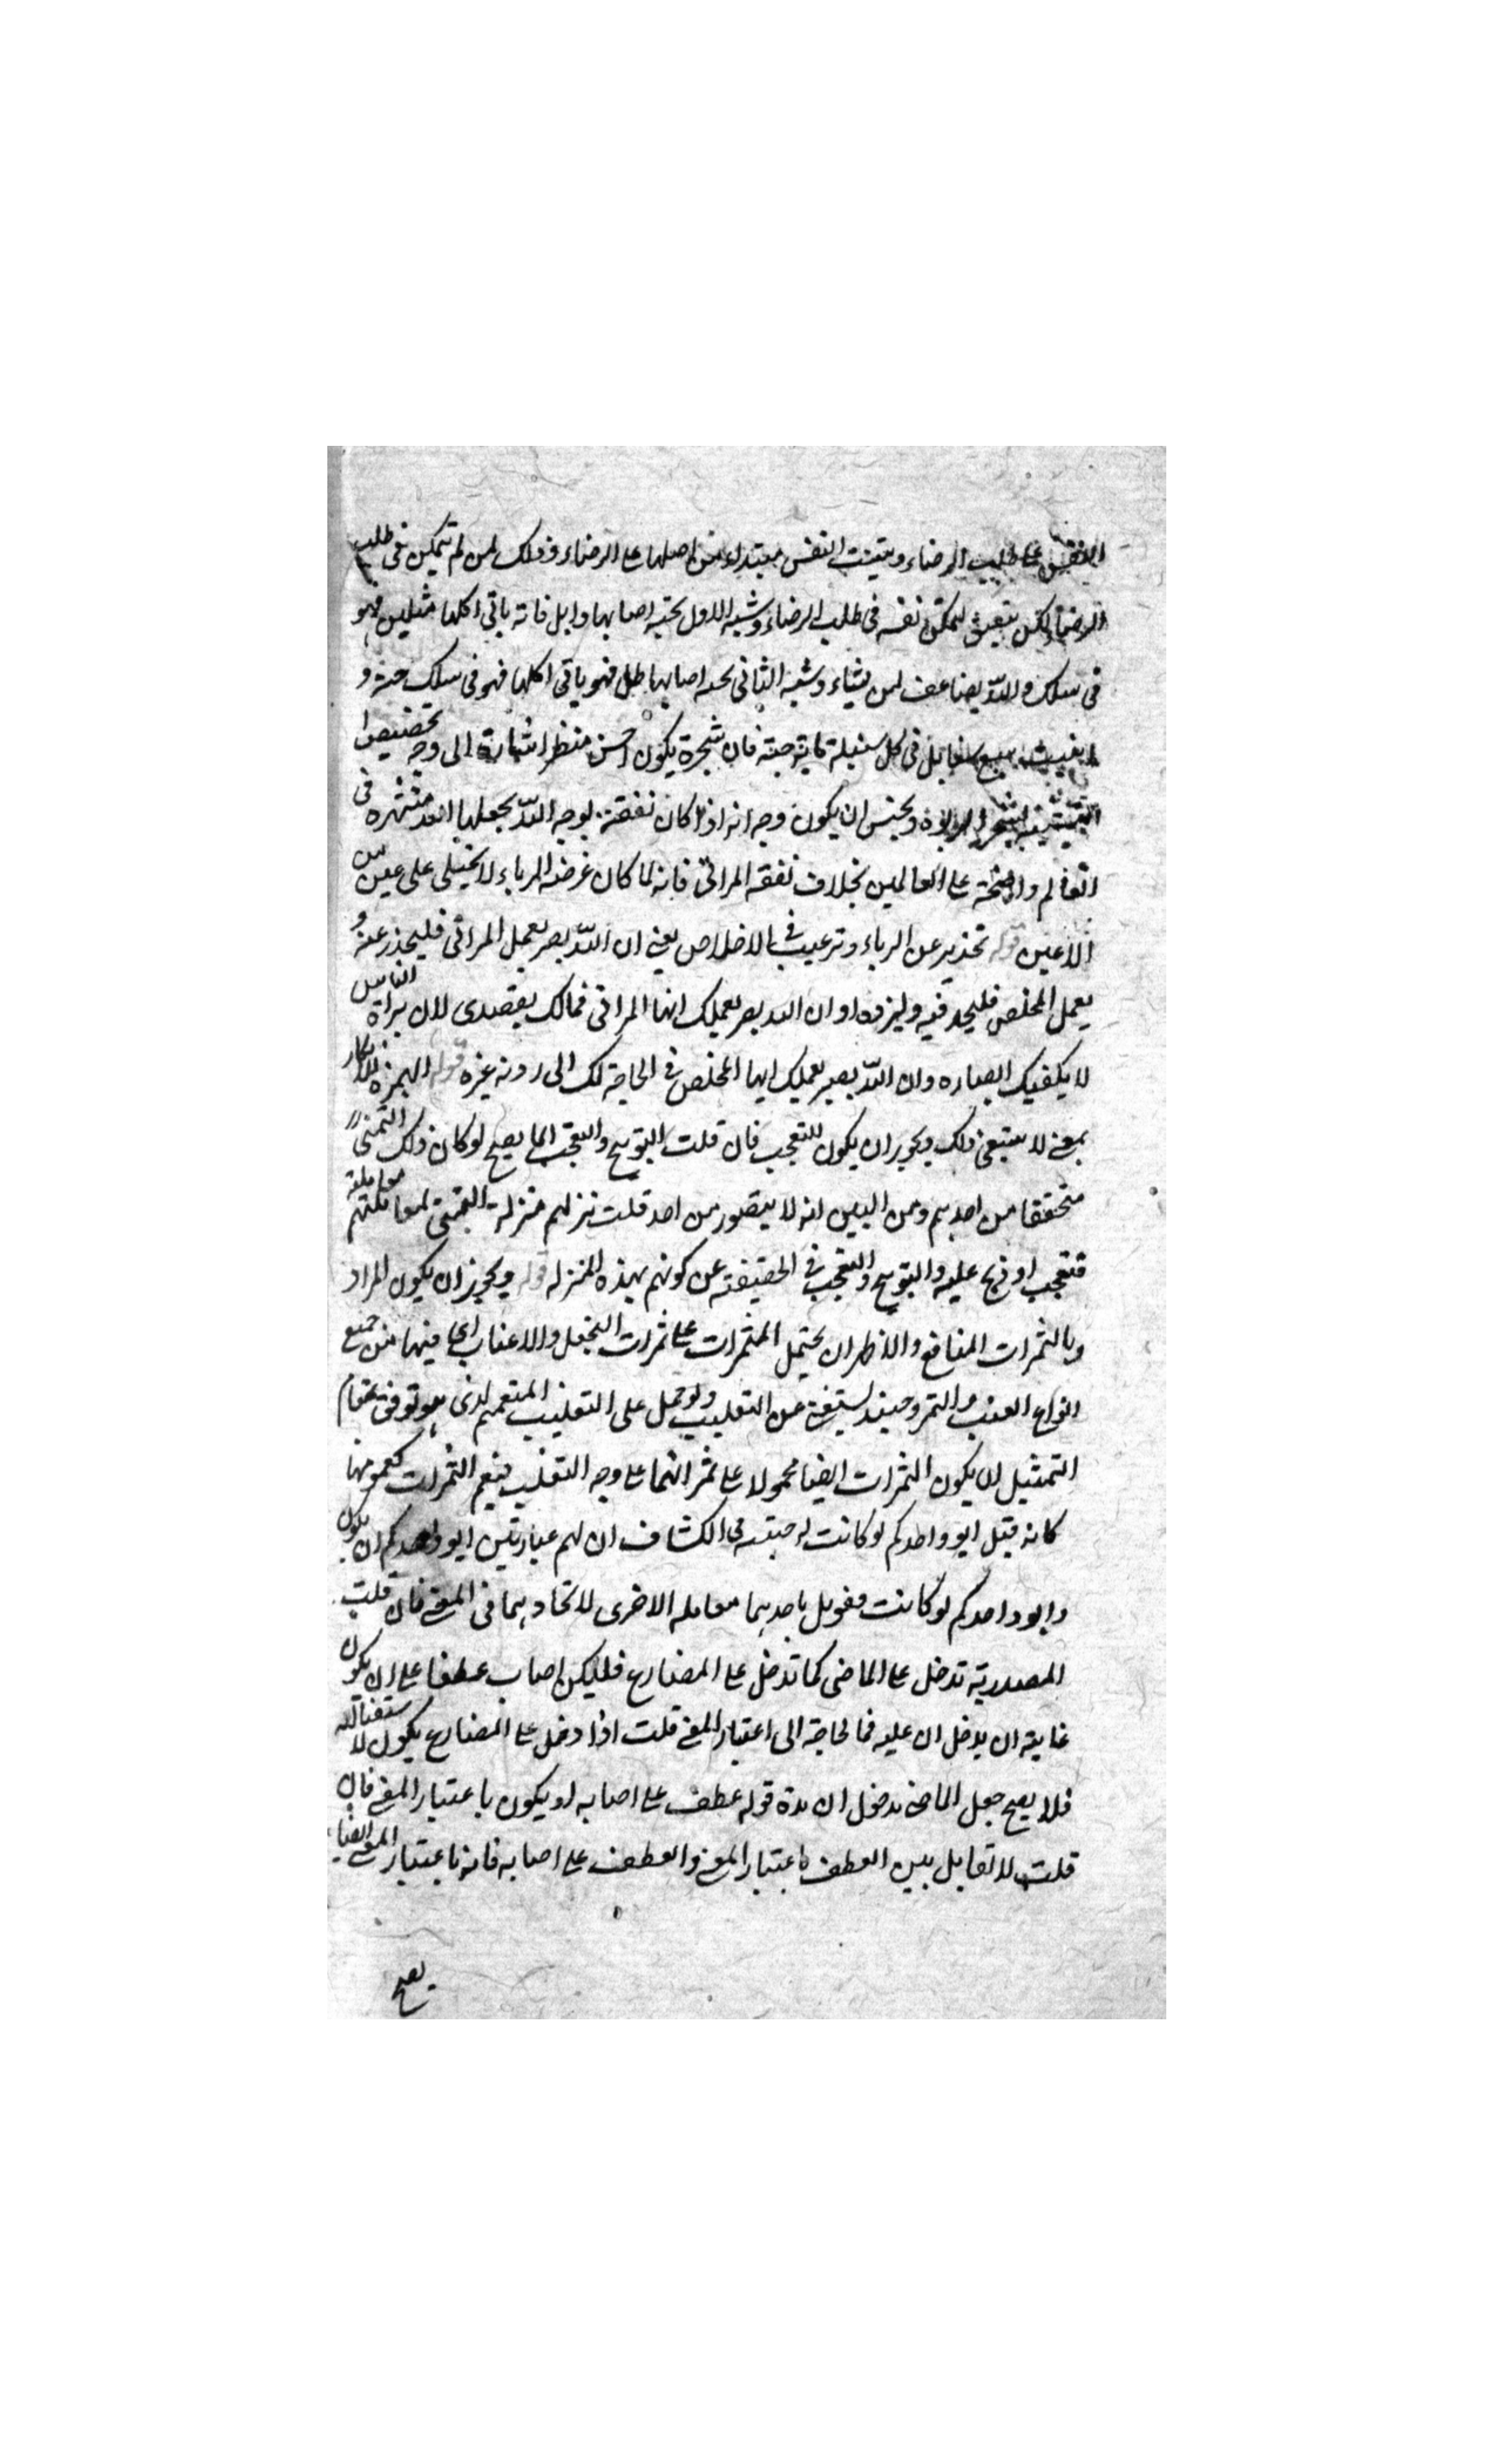 النفس على طلب الرضاء وتثبت النفس مبتداء من اصلها على الرضاء وذلك لمن لم يتمكن في طلب
الرضاء لكن ينفق ليمكن نفسه في طلب الرضاء وشبه الاول بجنة اصابها وابل فاته باتي اكلها مثلين فهو
في سلك والله يضاعف لمن يشاء وشبه الثاني بجنة اصابها طل فهو ياتي اكلها فهو في سلك حبة و
انبتت سبع سنابل في كل سنبلة ماية حبة فان شجرة يكون احسن منظرا اشارة الى وجه تخصيص
التشبيه بشجر الربوة ويحسن ان يكون وجه انه اذا كان نفقته لوجه الله يجعلها الله مشتهرة في
العالم والضحة على العالمين بخلاف نفقة المرائى فانه لما كان غرضه الرياء لا يخيلى على عين من
الاعين قوله تحذير عن الرياء وترغيب في الاخلاص يعني ان الله بصير بعمل المرائى فليحذر عنه و
بعمل المخلص فليجد فيه وليزده او ان الله بصير بعملك ايها المرائى فمالك يقصدى لان يراه الناس
لا يكفيك ابصاره وان الله بصير بعملك ايها المخلص في الحاجة لك الى رونه غيره قوله الهمزة للانكار
بمعنى لا ينبغى ذلك ويجوز ان يكون للتعجب فان قلت التوبيخ والتعجب انما يصح لو كان ذلك التمنى
متحققا من احدهم ومن البين انه لا يتصور من احد قلت نزلهم منزلة التمنى لمعاملتهم معاملة
فتعجب او وبخ عليه والتوبيخ والتعجب في الحقيقة عن كونهم بهذه المنزله قوله ويجوز ان يكون المراد
بالثمرات المنافع والاظهر ان يحتمل الثمرات على ثمرات النخل والاعناب اى فيها من جميع
انواع العنب والتمر وحينئذ يستغنى عن التغليب ولو حمل على التغليب لدى هو توفى بمقام
التمثيل لان يكون الثمرات ايضا محمولا على ثمراتهما على وجه التغليب فيعم الثمرات كعمومها
كانه قيل ايود احدكم لو كانت له جنة فى الكشاف ان لهم عبارتين ايود احدكم ان يكون
وايود احدكم لو كانت فعومل باحديهما معامله الاخرى لاتحادهما في المعنى فان قلت
المصدرية تدخل على الماضى كما تدخل على المضارع فليكن اصاب عطفا على ان يكون
غايته ان يدخل ان عليه فما الحاجة الى اعتبار المعنى قلت اذا دخل على المضارع يكون لاستقباله
فلا يصح جعل الماضى مدخول ان هذه قوله عطف على اصابه او يكون باعتبار المعنى فان
قلت لا تقابل بين العطف باعتبار المعنى والعطف على اصابه فانه باعتبار المعنى ايضا
يصح